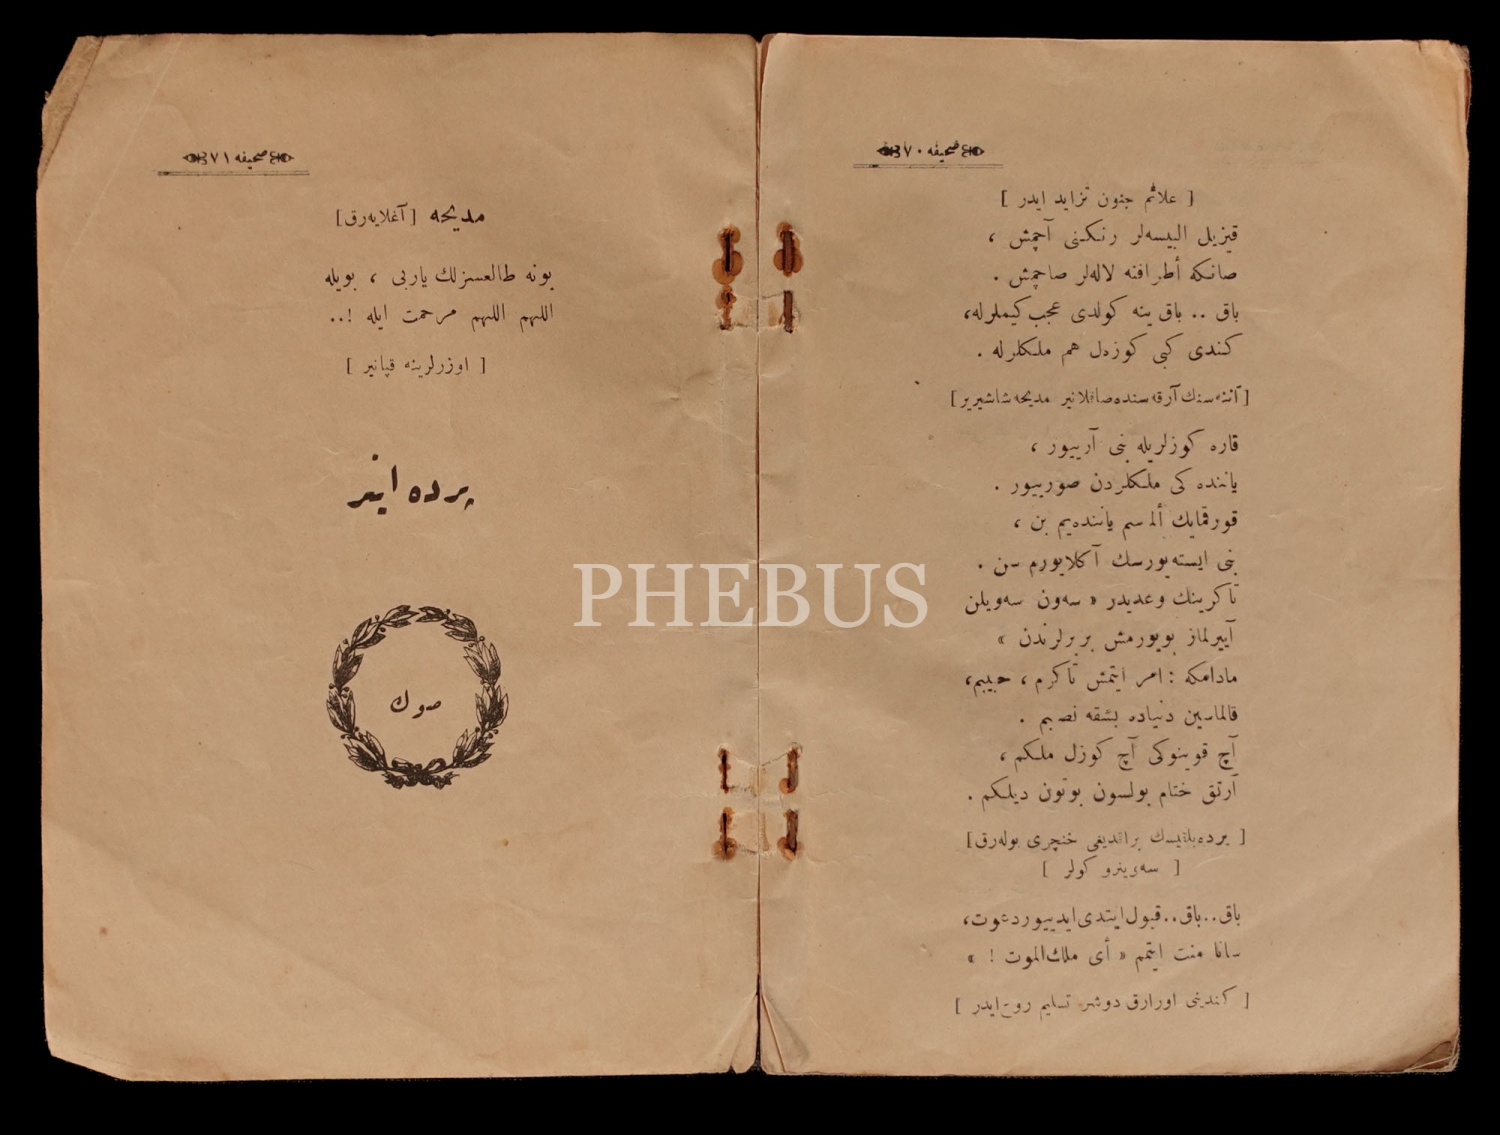 صحيفه ٧٠
[ علائم جنون تزايد ايدر ]
قيزيل البيسه‌لر رنكنى آچمش ،
صانكه أطرافنه لاله‌لر صاچمش .
باق .. باق ينه كولدى عجب كيملرله،
كندى كبى كوزه‌ل هم ملكلرله .
[ آننه‌سنك آرقه‌سنده صاقلانير مديحه شاشيرير ]
قاره كوزلريله بنى آرييور ،
ياننده كى ملكلردن صورييور .
قورقمايك ألماسم ياننده‌يم بن ،
بنى ايسته‌يورسك آكلايورم سن .
تاكرينك وعديدر « سه‌ون سه‌ويلن
آييرلماز بويورمش بربرلرندن »
مادامكه : امر ايتمش تاكرم ، حبيبم،
قالماسين دنياده بشقه نصيبم .
آچ قوينوكى آچ كوزل ملكم ،
آرتق ختام بولسون بوتون ديلكم .
[ يرده بلقيسك براقديغى خنچرى بوله‌رق ]
[ سه‌وينرو كولر ]
باق..باق..قبول ايتدى ايدييور دعوت،
سانا منت ايتمم « أى ملك الموت ! »
[ كندينى اورارق دوشر تسليم روح ايدر ]
صحيفه ٧١
مديحه [ آغلايه‌رق ]
بونه طالعسزلك ياربى ، بويله
اللهم اللهم مرحمت ايله !..
[ اوزرلرينه قپانير ]
پرده اينر
صوك
PHEBUS